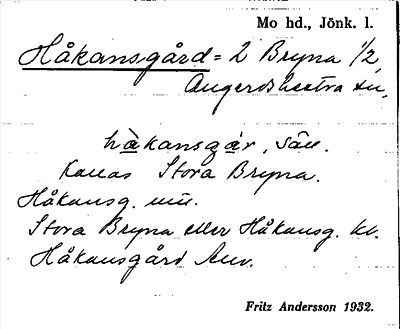 Mo hd., Jönk. l.
Håkansgård = 2 Bryna 1/2,
Angerdshestra sn,
hàkansgár, sån.
Kallas Stora Bryna.
Håkansg.
Stora Bryna eller Håkansg.
Håkansgård
Fritz Andersson 1932.